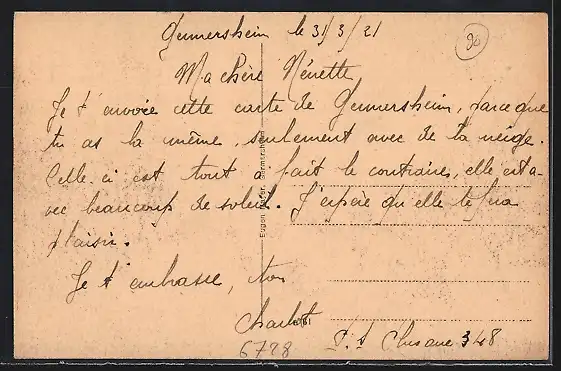 Germersheim le 31/3/21
96
Ma chère Nénette
Je t'envoie cette carte de Germersheim, parce que
tu as la même, seulement avec de la neige.
Celle-ci est tout à fait le contraire, elle est a-
vec beaucoup de soleil. J'espère qu'elle te fera
plaisir.
Je t'embrasse, ton
Charlot
P.S
348
6728
Eugen Germersheim